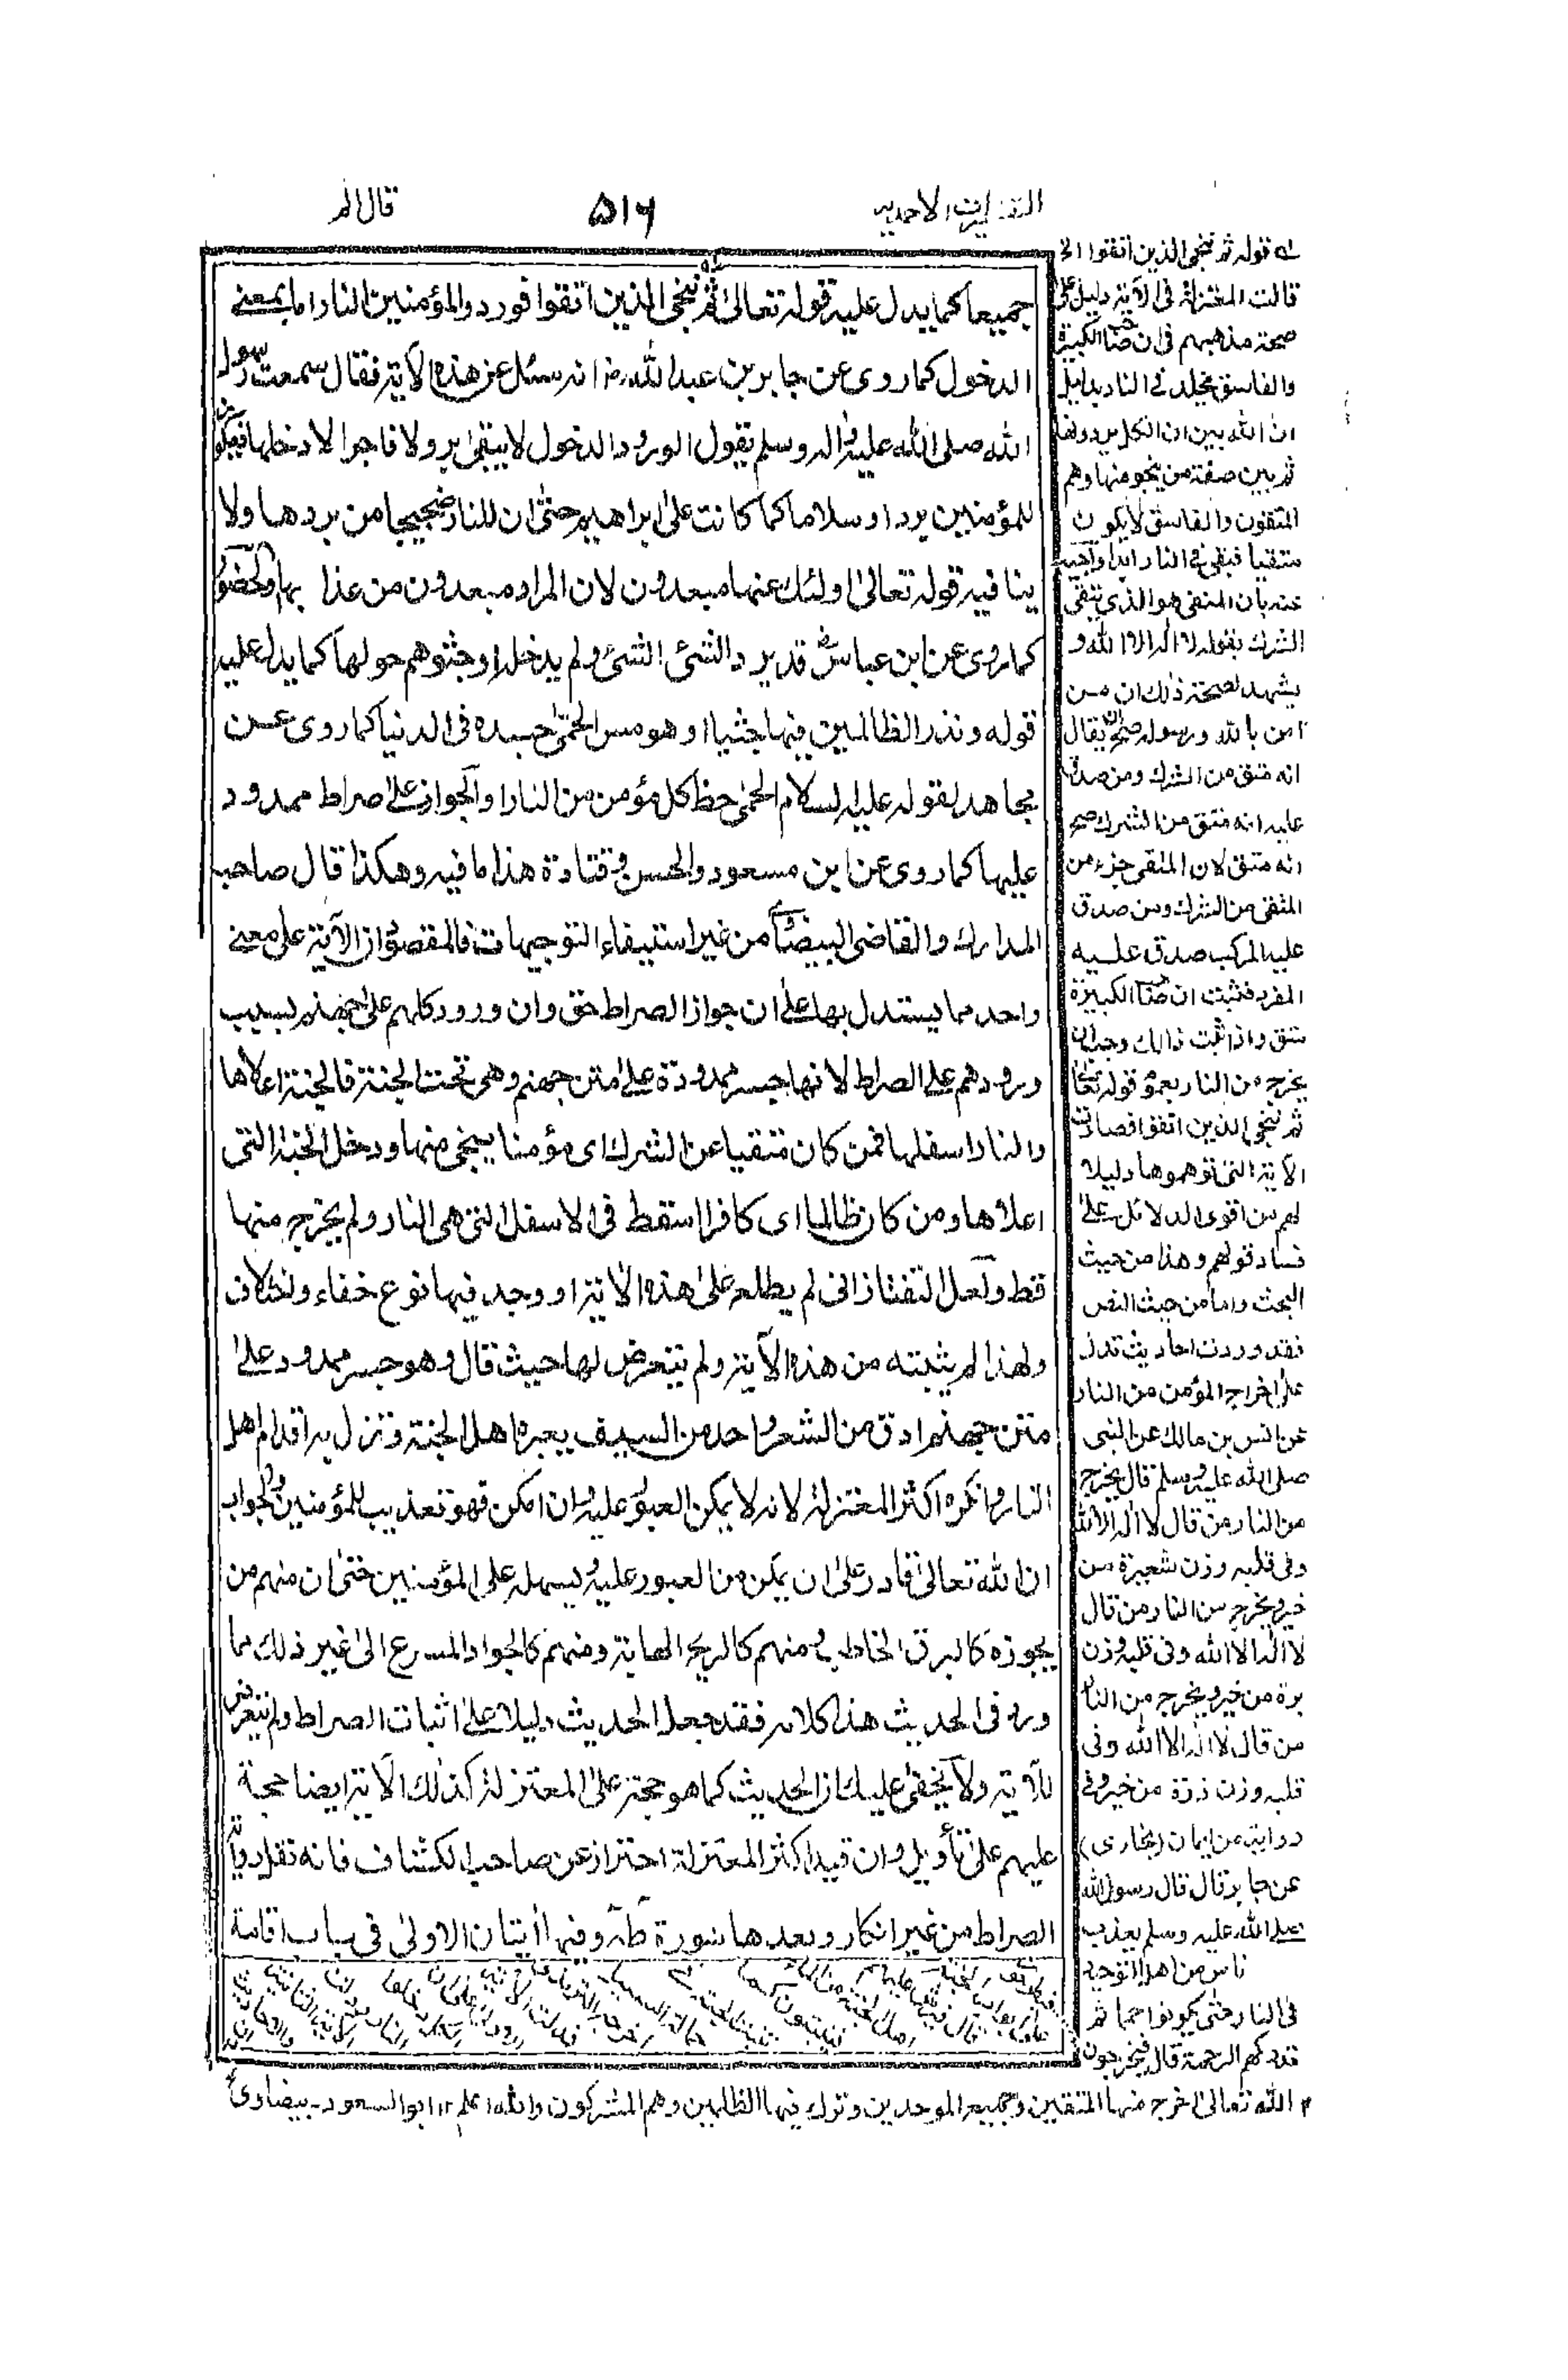 التفسيرات الاحمديه
۵۱۶
قال الم
جميعا كما يدل عليه قوله تعالى ثم ننجى الذين اتقوا فورود المؤمنين النار اما بمعنى
الدخول كما روى عن جابر بن عبد الله رض انه سئل عن هذه الآية فقال سمعت رسول
الله صلى الله عليه واله وسلم يقول الورود الدخول لا يبقى بر ولا فاجر الا دخلها فيكون
للمؤمنين بردا وسلاما كما كانت على ابراهيم حتى ان للنار ضجيجا من بردها ولا
ينافيه قوله تعالى اولئك عنها مبعدون لان المراد مبعدون من عذابها والحضور
كما روى عن ابن عباس رض قد يرد الشئ الشئ ولم يدخل او جثوهم حولها كما يدل عليه
قوله ونذر الظالمين فيها جثيا او هو مس الحمى جسده فى الدنيا كما روى عن
مجاهد لقوله عليه السلام الحمى حظ كل مؤمن من النار او الجواز على صراط ممدود
عليها كما روى عن ابن مسعود والحسن وقتادة هذا ما فيه وهكذا قال صاحب
المدارك والقاضى البيضاوى من غير استيفاء التوجيهات فالمقصود ان الآية على معنى
واحد مما يستدل بها على ان جواز الصراط حق وان ورود كلهم على جهنم بسبب
ورودهم على الصراط لانها جسر ممدودة على متن جهنم وهى تحت الجنة فالجنة اعلاها
والنار اسفلها فمن كان متقيا عن الشرك اى مؤمنا ينجى منها ودخل الجنة التى
اعلاها ومن كان ظالما اى كافرا سقط فى الاسفل التى هى النار ولم يخرج منها
قط ولعل التفتازانى لم يطلع على هذه الآية او وجد فيها نوع خفاء واختلاف
ولهذا لم يثبته من هذه الآية ولم يتعرض لها حيث قال وهو جسر ممدود على
متن جهنم ادق من الشعر واحد من السيف يعبره اهل الجنة وتزل به اقدام اهل
النار وانكره اكثر المعتزلة لانه لا يمكن العبور عليه وان امكن فهو تعذيب للمؤمنين والجواب
ان الله تعالى قادر على ان يمكن من العبور عليه ويسهله على المؤمنين حتى ان منهم من
يجوزه كالبرق الخاطف ومنهم كالريح الهابة ومنهم كالجواد المسرع الى غير ذلك مما
ورد فى الحديث هذا كلامه فقد جعل الحديث دليلا على اثبات الصراط ولم يتعرض
للآية ولا يخفى عليك ان الحديث كما هو حجة على المعتزلة كذلك الآية ايضا حجة
عليهم على تأويل وان قيد اكثر المعتزلة احتراز عن صاحب الكشاف فانه نقل رواية
الصراط من غير انكار وبعدها سورة طه وفيها ايتان الاولى فى باب اقامة
له قوله ثم ننجى الذين اتقوا الخ
قالت المعتزلة فى الآية دليل على
صحة مذهبهم فى ان صاحب الكبيرة
والفاسق يخلد فى النار بدليل
ان الله بين ان الكل يردونها
ثم بين صفة من ينجو منها وهم
المتقون والفاسق لا يكون
متقيا فبقى فى النار ابدا واجيب
عنه بان المتقى هو الذى يتقى
الشرك بقوله لا اله الا الله و
يشهد لصحة ذلك ان من
آمن بالله ورسوله صح ان يقال
انه متق من الشرك ومن صدق
عليه انه متق من الشرك صح
انه متق لان المتقى جزء من
المتقى من الشرك ومن صدق
عليه المركب صدق عليه
المفرد فثبت ان صاحب الكبيرة
متق واذا ثبت ذلك وجب ان
يخرج من النار بعموم قوله تعالى
ثم ننجى الذين اتقوا فصارت
الآية التى توهموها دليلا
لهم من اقوى الدلائل على
فساد قولهم وهذا من حيث
البحث واما من حيث النص
فقد وردت احاديث تدل
على اخراج المؤمن من النار
عن انس بن مالك عن النبى
صلى الله عليه وسلم قال يخرج
من النار من قال لا اله الا الله
وفى قلبه وزن شعيرة من
خير ويخرج من النار من قال
لا اله الا الله وفى قلبه وزن
برة من خير ويخرج من النار
من قال لا اله الا الله وفى
قلبه وزن ذرة من خير وفى
رواية من ايمان (بخارى)
عن جابر قال قال رسول الله
صلى الله عليه وسلم يعذب
ناس من اهل التوحيد
فى النار حتى يكونوا حمما ثم
تدركهم الرحمة قال فيخرجون
الله تعالى اخرج منها المتقين وجميع الموحدين وترك فيها الظلمين وهم المشركون والله اعلم ١٢ ابو السعود۔ بيضاوى